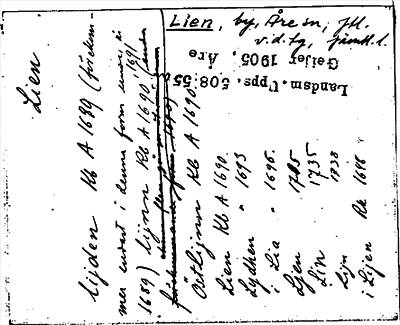 Lien, by, Åre sn, Jtl.
v.d.ty, jämtl.l.
Landsm. Upps. 508:55
Geijer 1905, Åre
Lien
Lijden Kb A 1689 (förekom-
mer endast i denna form
1691
1689) Lijnn Kb A 1690
Östlijnn Kb A 1690
Lien Kb A 1690.
Lydhen " 1693
i Lia " 1696.
Ljen 1715
Lin 1735
Lijn 1738
i Lijen Rk 1646